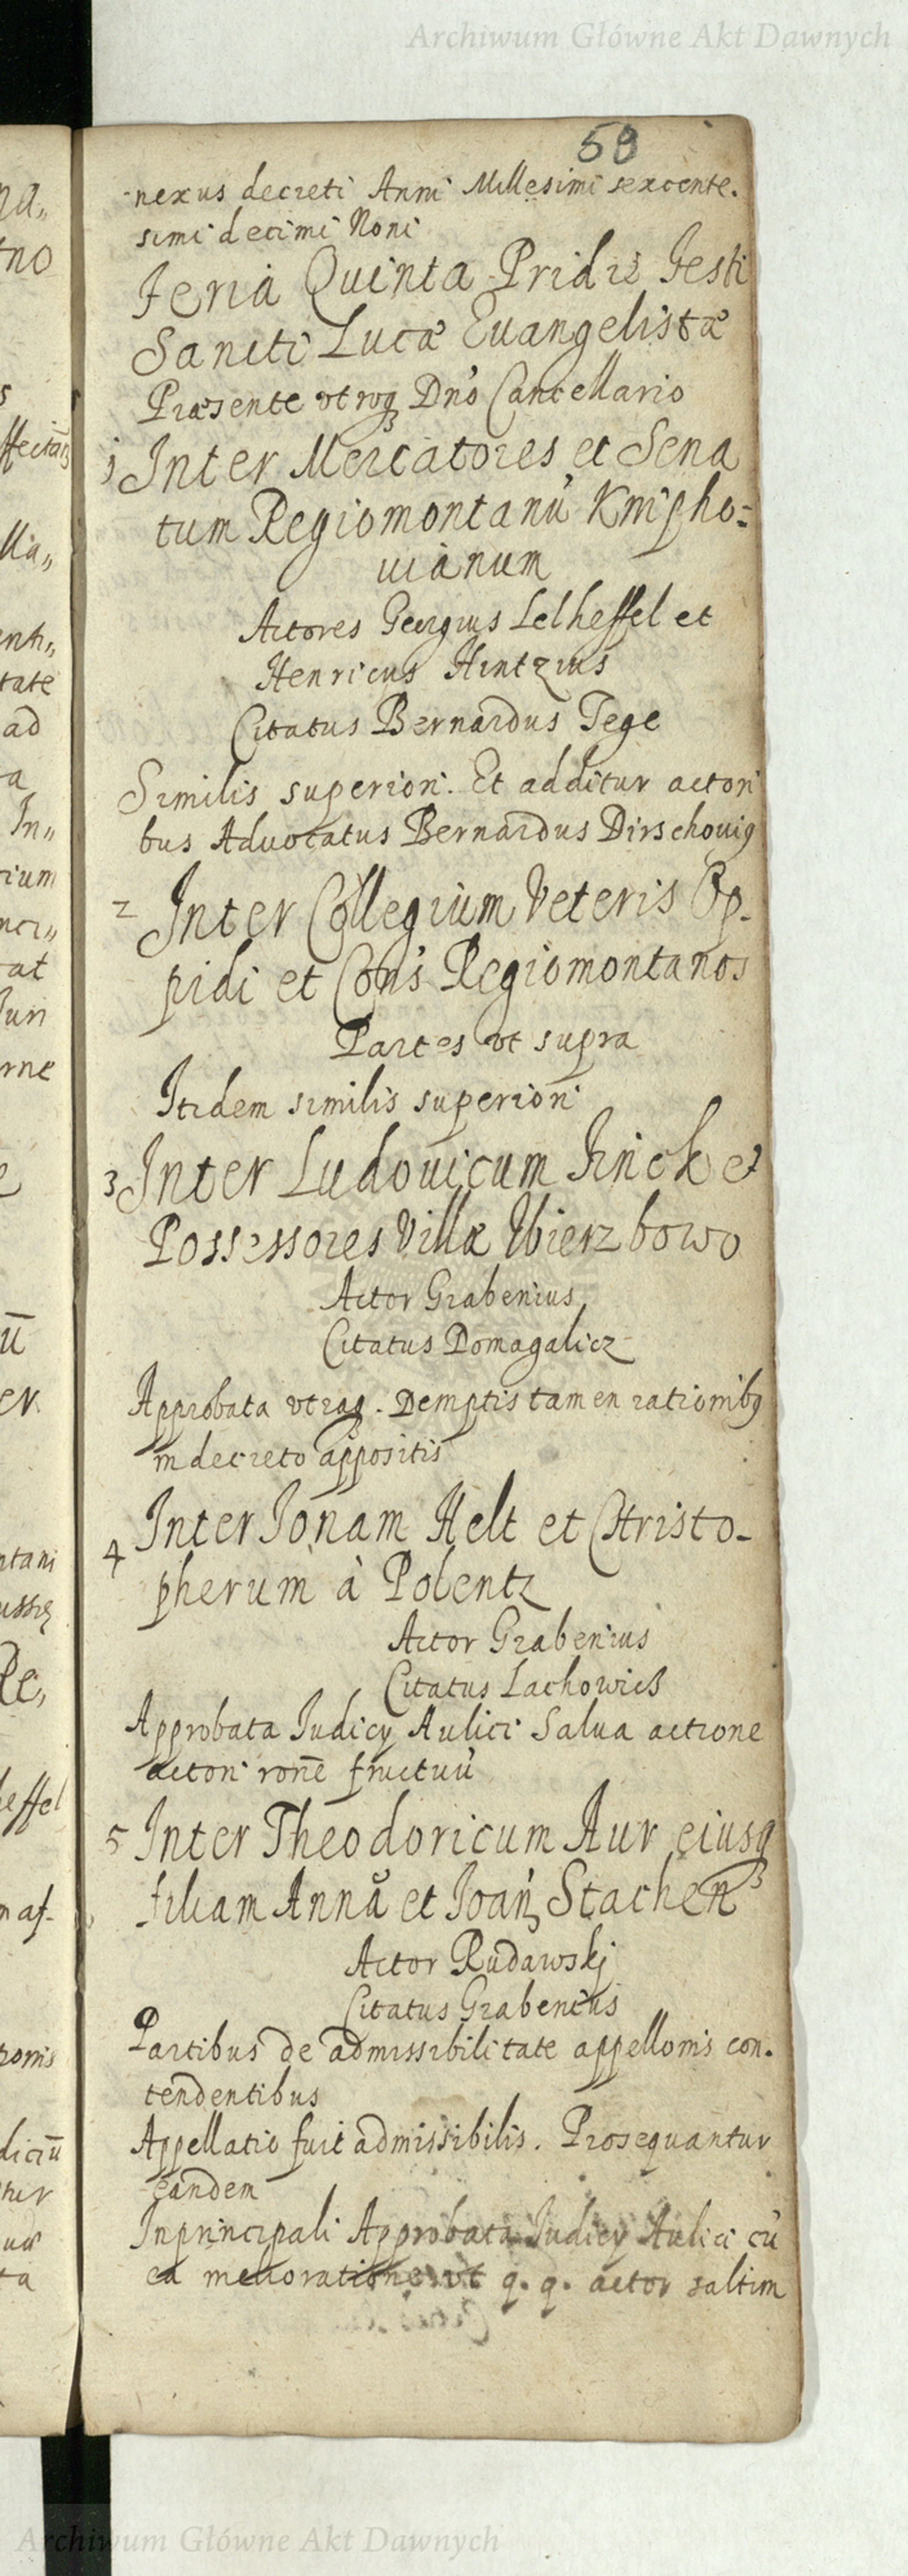 Archiwum Główne Akt Dawnych
59
nexus decreti Anni Millesimi sexcente.
simi decimi Noni
Feria Quinta Pridie Festi
Sancti Lucæ Euangelistæ
Præsente vtroq Dno Cancellario
1 Inter Mercatores et Sena
tum Regiomontanu Knipho=
uianum
Actores Georgius Lelheffel et
Henricus Hintzius
Citatus Bernardus Tege
Similis superiori. Et additur actori
bus Aduocatus Bernardus Dirschouig
2 Inter Collegium Veteris Op-
pidi et Cons Regiomontanos
Partes vt supra
Itidem similis superiori
3 Inter Ludouicum Finck et
Possessores Villæ Wierzbowo
Actor Grabenius
Citatus Domagalicz
Approbata vtraq. Demptis tamen rationibq
in decreto appositis
4 Inter Jonam Helt et Christo-
pherum à Polentz
Actor Grabenius
Citatus Lachowicz
Approbata Judicy Aulici Salua actione
actori rone fructuu
5 Inter Theodoricum Aur eiusq
filiam Annă et Joan Stachen
Actor Rudawskj
Citatus Grabenius
Partibus de admissibilitate appellonis con.
tendentibus
Appellatio fuit admissibilis. Prosequantur
eandem
Inprincipali Approbata Judicy Aulici cu
ea melioratione vt q. q. actor saltim
Archiwum Główne Akt Dawnych